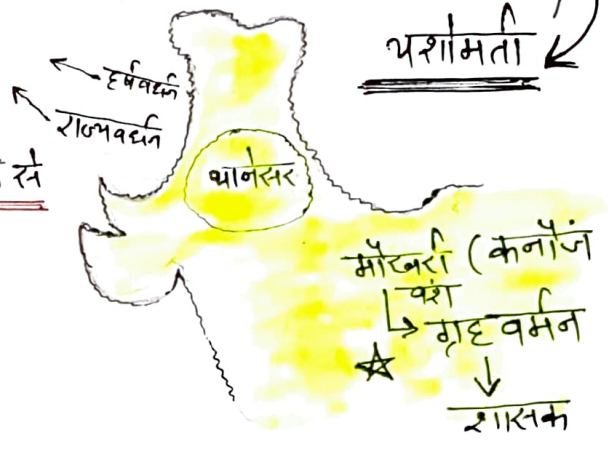 यशोमती
हर्षवर्धन
राज्यवर्धन
से
थानेसर
मौखरी (कन्नौज
वंश
ग्रहवर्मन
शासक